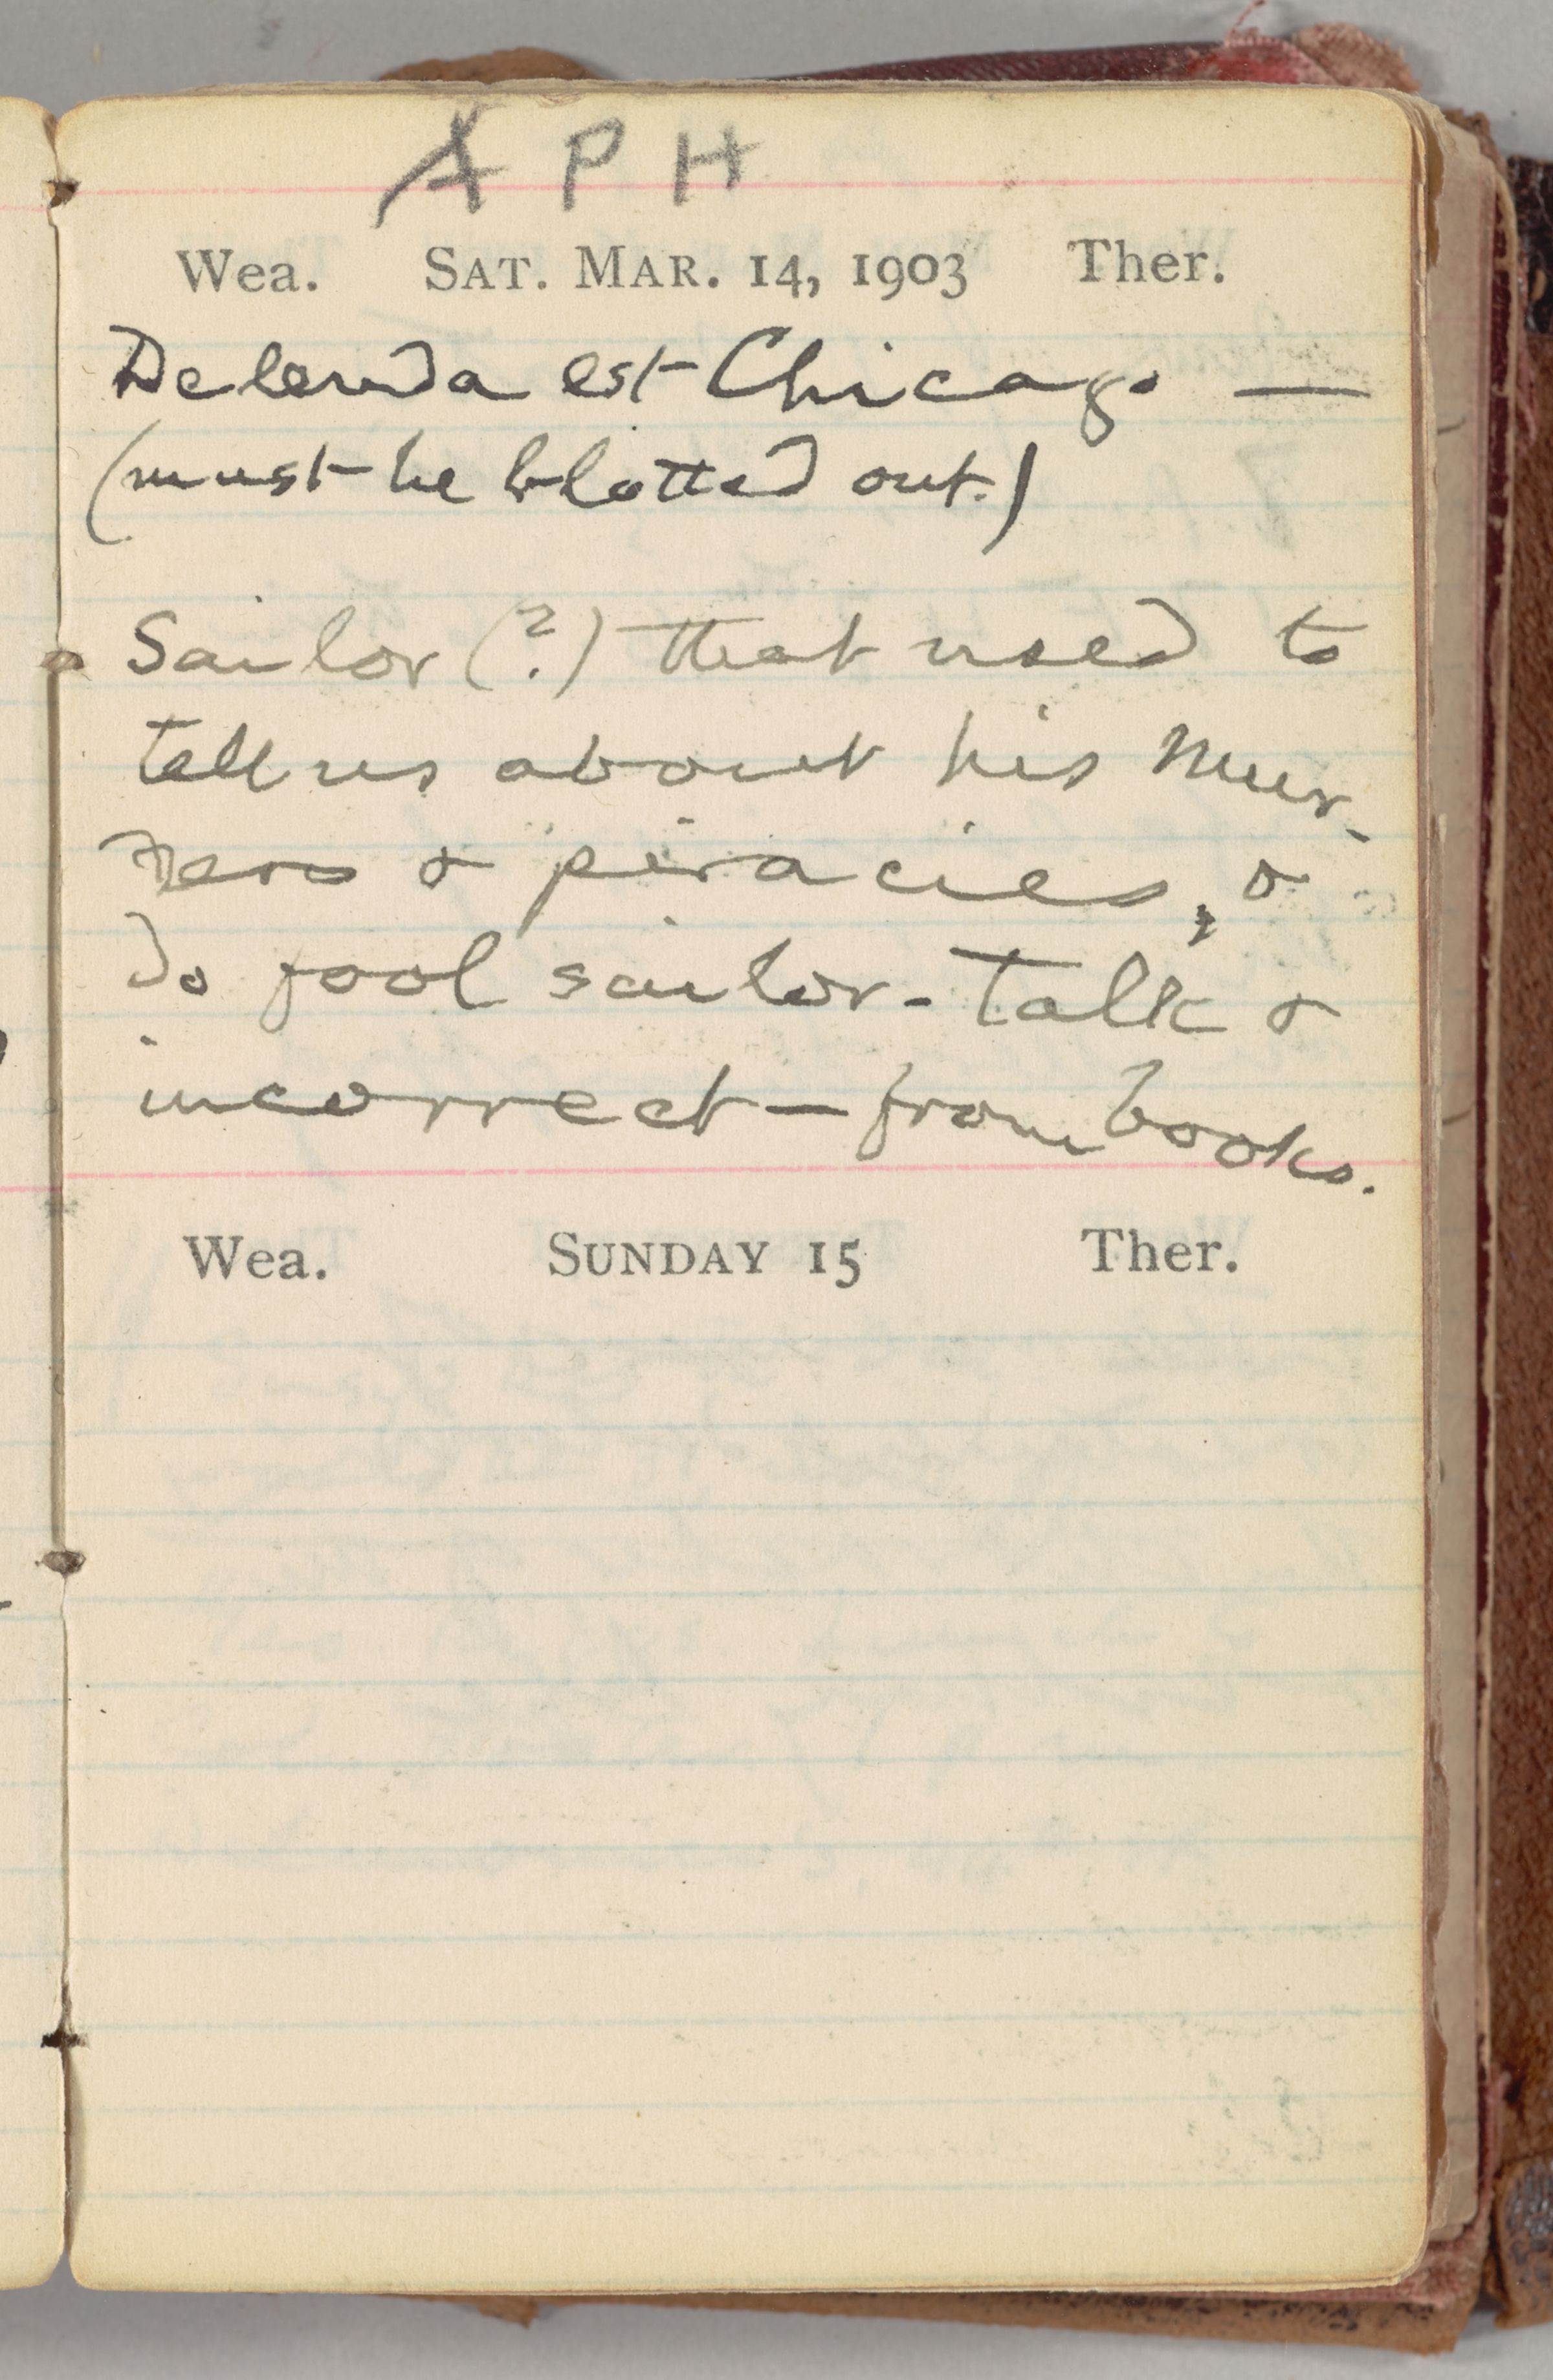 A P H
Wea. SAT. MAR. 14, 1903 Ther.
Delenda est Chicago —
(must be blotted out.)
Sailor (?) that used to
tell us about his mur-
ders & piracies, &
do fool sailor-talk &
incorrect — from books.
Wea. SUNDAY 15 Ther.